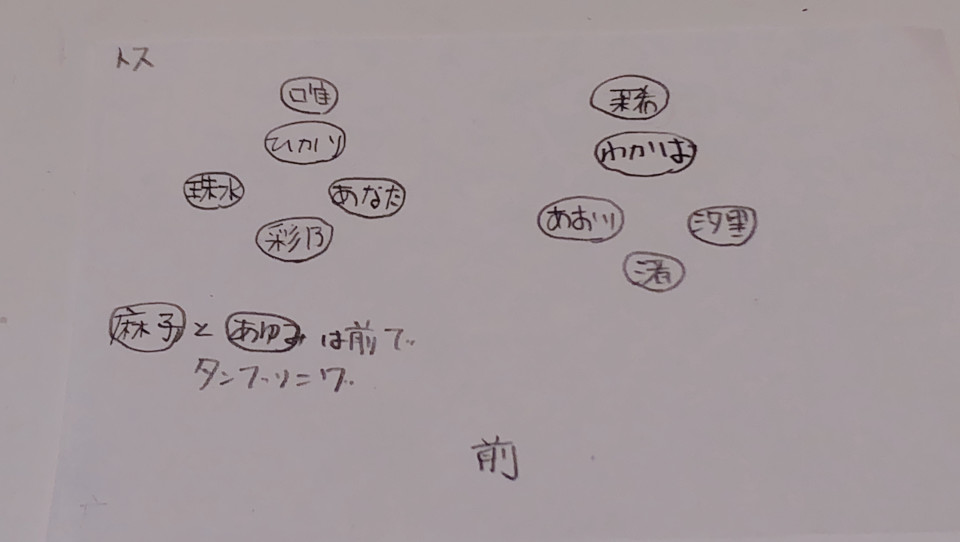 トス
唯 栞希
ひかり わかば
珠水 あなた
あおい 汐里
彩乃
渚
麻子 と あゆみ は前で
タンブリング
前